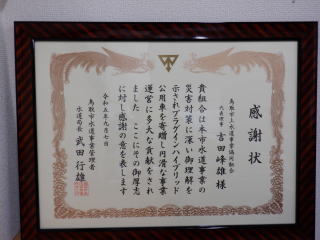 感謝状
鳥取市上水道事業協同組合
代表理事 吉田峰雄様
貴組合は本市水道事業の
災害対策に深い御理解を
示されプラグインハイブリッド
公用車を寄贈し円滑な事業
運営に多大な貢献をされ
ました ここにその御厚志
に対し感謝の意を表します
令和五年九月七日
鳥取市水道事業管理者
水道局長 武田行雄